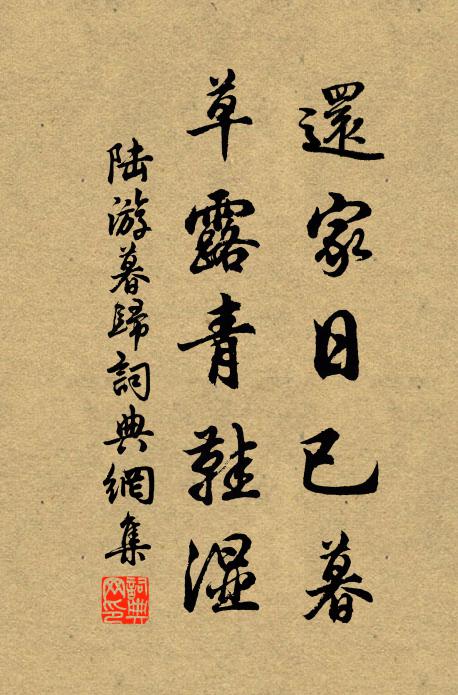 還家日已暮
草露青鞋濕
陸游暮歸詞典網集
詞典网印